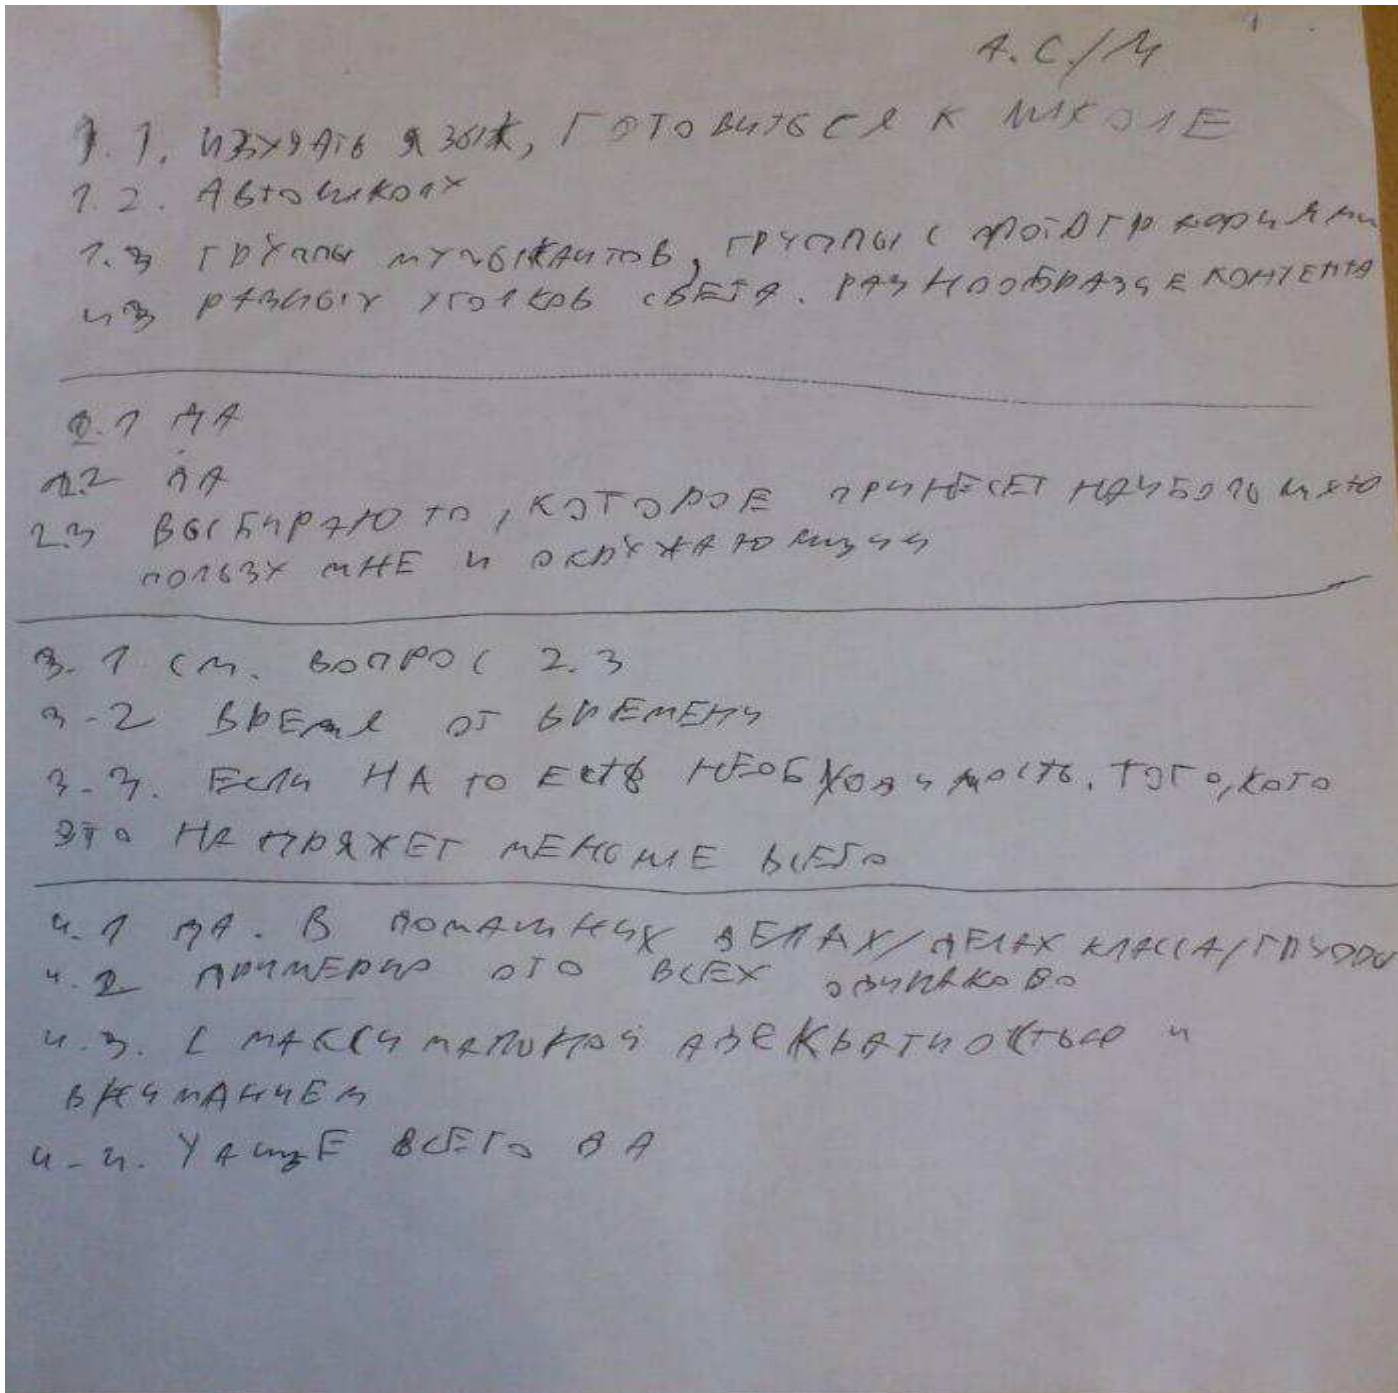 А.С./М
1.1. ИЗУЧАТЬ ЯЗЫК, ГОТОВИТЬСЯ К ШКОЛЕ
1.2. АВТОШКОЛУ
1.3 ГРУППЫ МУЗЫКАНТОВ, ГРУППЫ С ФОТОГРАФИЯМИ
ИЗ РАЗНЫХ УГОЛКОВ СВЕТА. РАЗНООБРАЗИЕ КОНТЕНТА
2.1 ДА
2.2 ДА
2.3 ВЫБИРАЮ ТО, КОТОРОЕ ПРИНЕСЕТ НАИБОЛЬШУЮ
ПОЛЬЗУ МНЕ И ОКРУЖАЮЩИМ
3.1 СМ. ВОПРОС 2.3
3.2 ВРЕМЯ ОТ ВРЕМЕНИ
3.3. ЕСЛИ НА ТО ЕСТЬ НЕОБХОДИМОСТЬ. ТОГО, КОГО
ЭТО НАПРЯЖЕТ МЕНЬШЕ ВСЕГО
4.1 ДА. В ДОМАШНИХ ДЕЛАХ/ДЕЛАХ КЛАССА/ГРУППЫ
4.2 ПРИМЕРНО ОТО ВСЕХ ОДИНАКОВО
4.3. С МАКСИМАЛЬНОЙ АДЕКВАТНОСТЬЮ И
ВНИМАНИЕМ
4.4. ЧАЩЕ ВСЕГО ДА